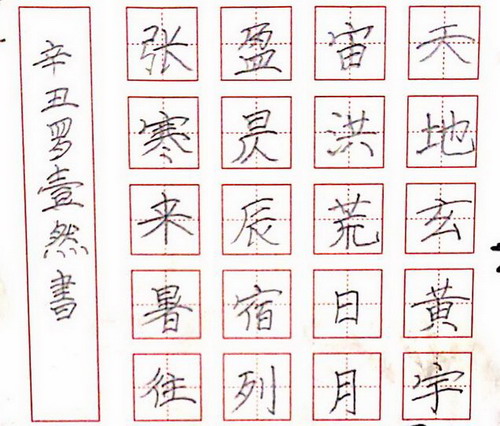 天地玄黄宇
宙洪荒日月
盈昃辰宿列
张寒来暑往
辛丑罗壹然書